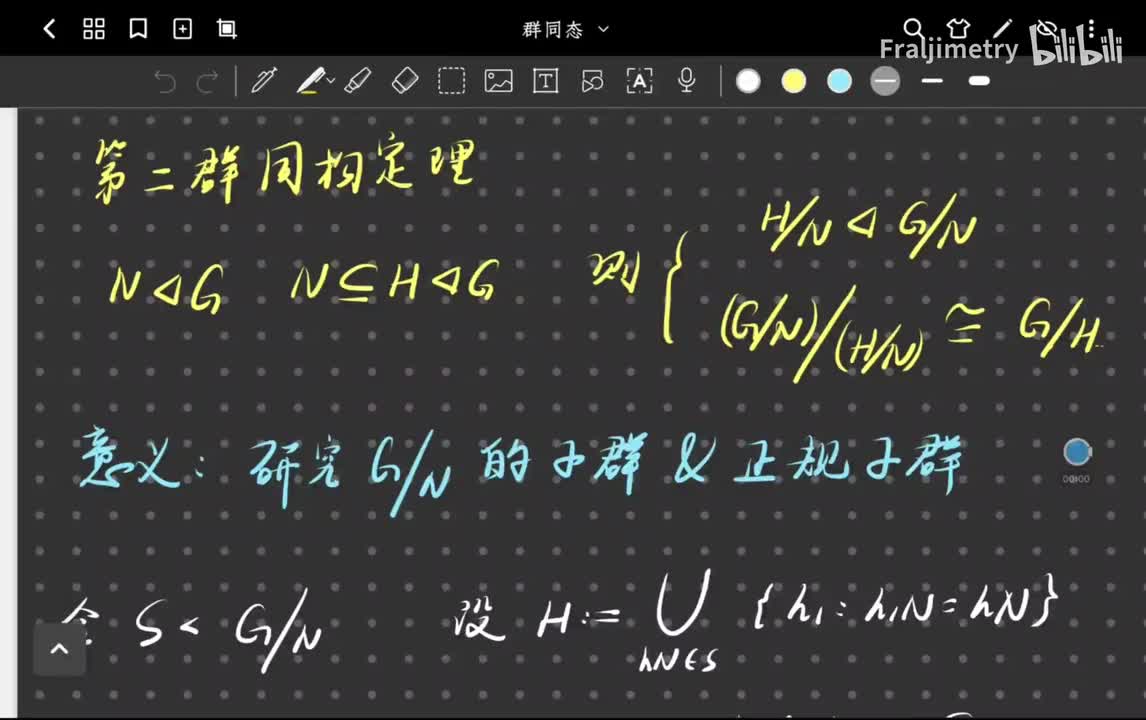 群同态
Fraljimetry bilibili
第二群同构定理
N ◁ G N ⊆ H ◁ G 则 { H/N ◁ G/N
(G/N)/(H/N) ≅ G/H
意义: 研究 G/N 的子群 & 正规子群
00:00
令 S < G/N 设 H := ⋃_{hN∈S} {h₁ : h₁N = hN}